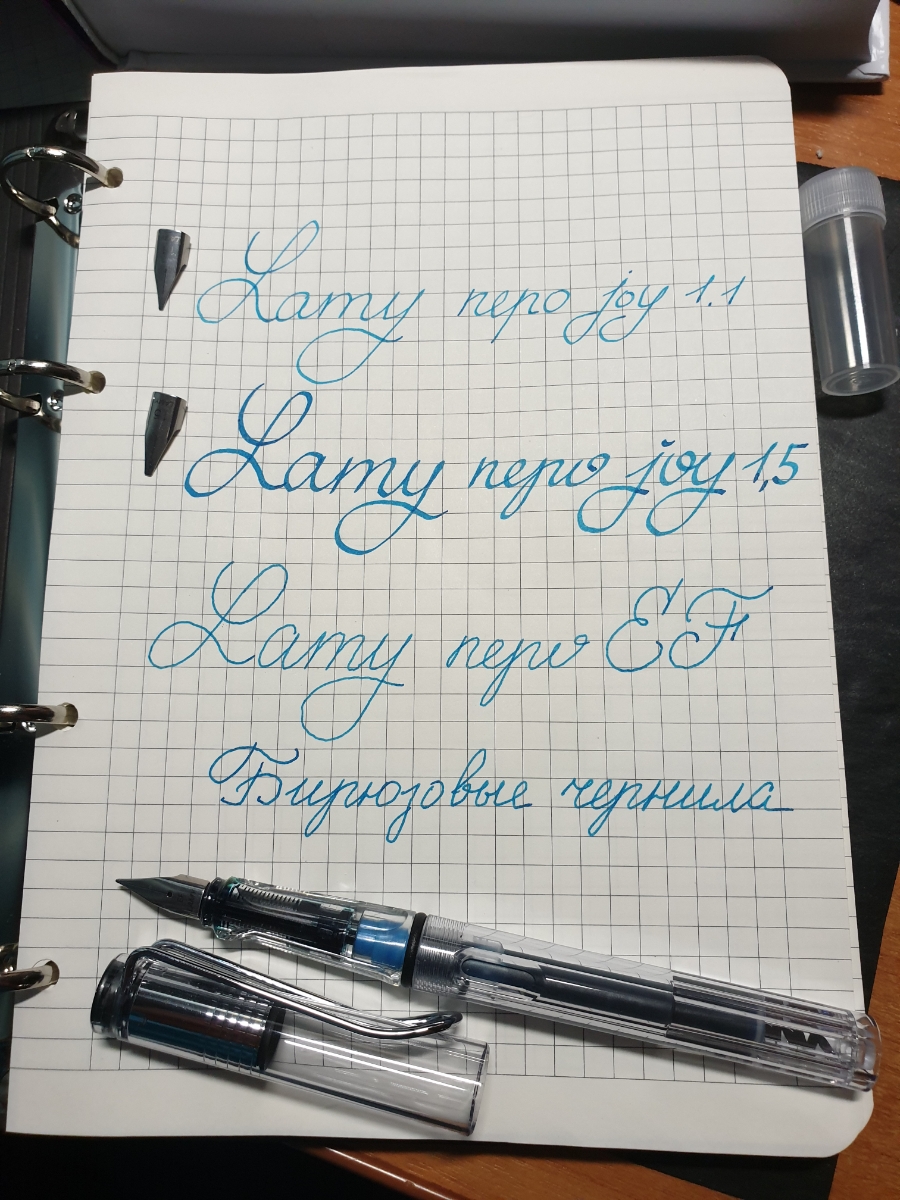 Lamy перо joy 1.1
Lamy перо joy 1,5
Lamy перо EF
Бирюзовые чернила